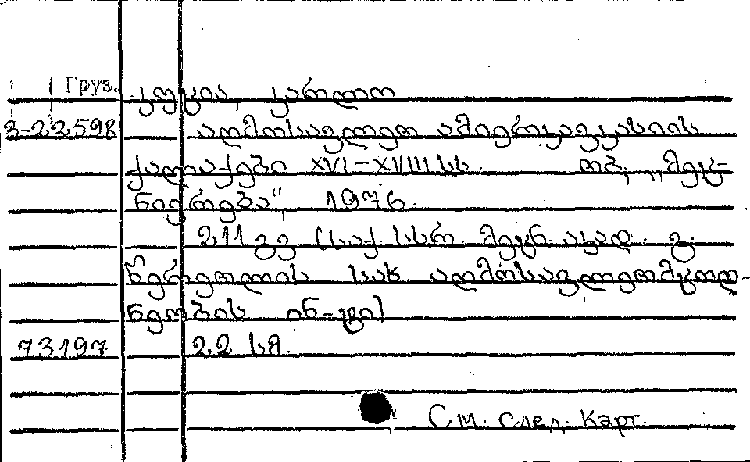 Груз. კუცია, კარლო
3-23.598 აღმოსავლეთ ამიერკავკასიის
ქალაქები XVI-XVIII სს. თბ., „მეც-
ნიერება", 1976.
211 გვ. (საქ. სსრ მეცნ. აკად. გ.
წერეთლის სახ. აღმოსავლეთმცოდ-
ნეობის ინ-ტი)
73197 22 სმ.
См. след. карт.